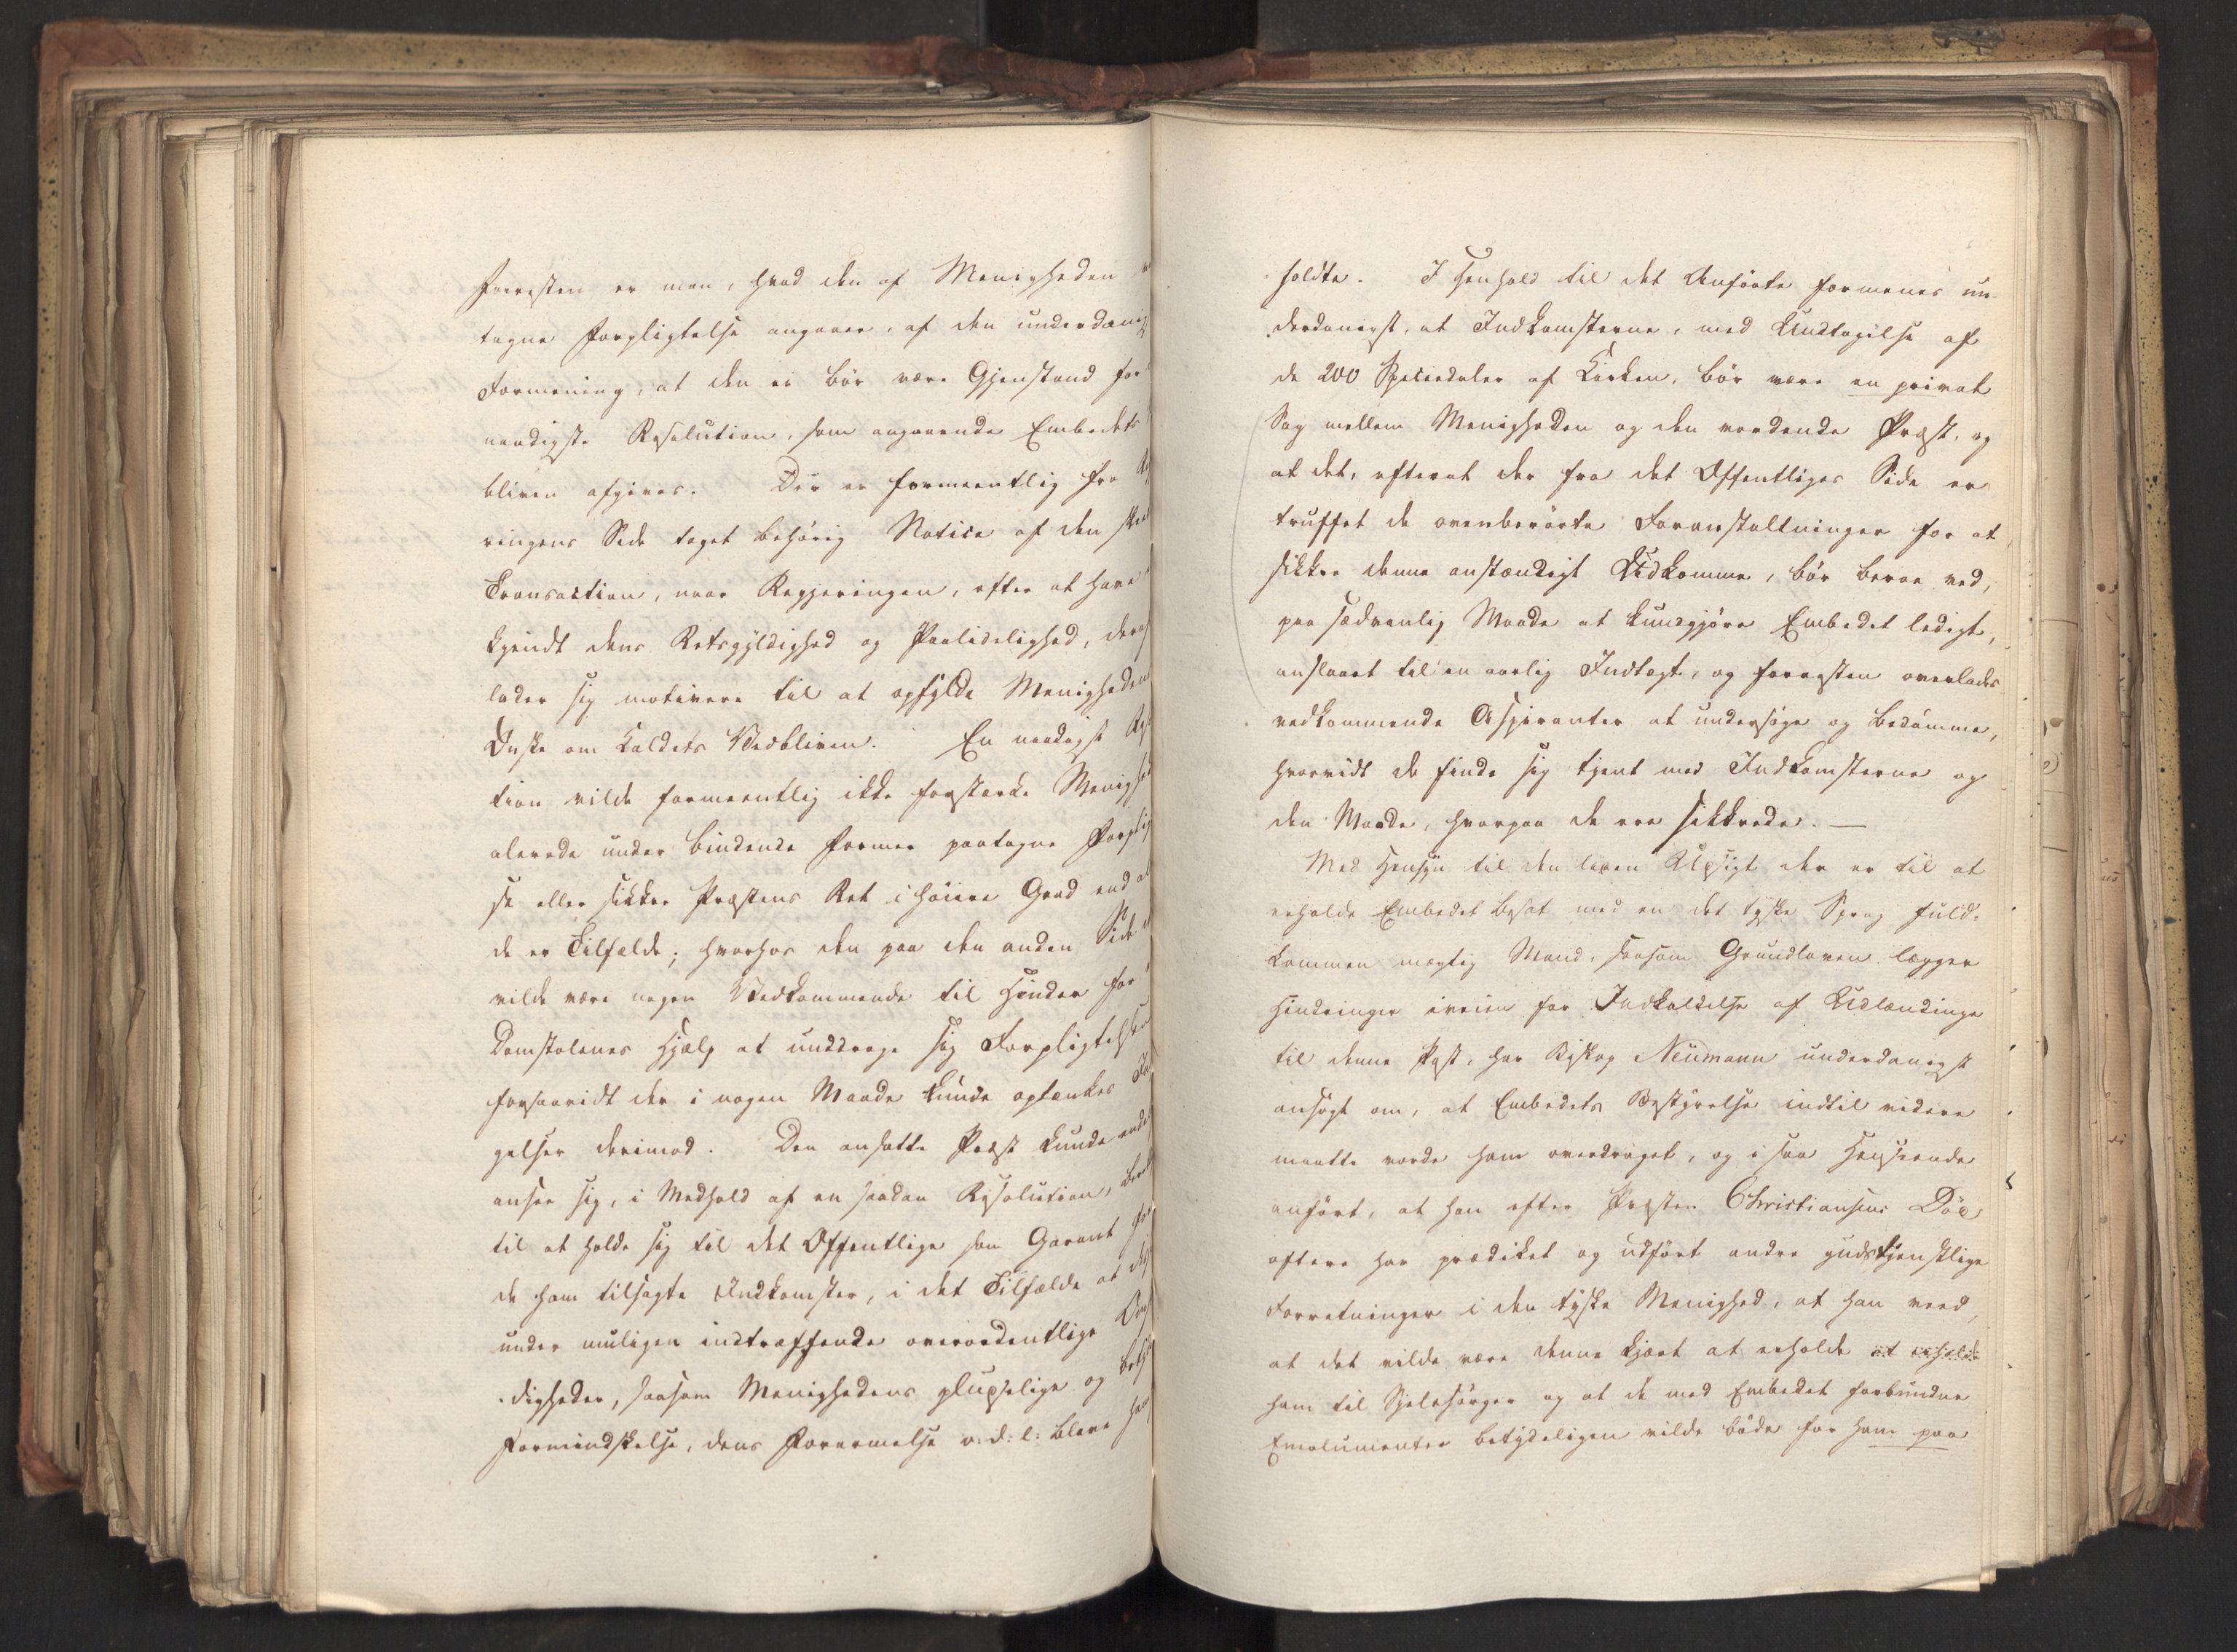 forresten er man, hvad den af Menigheden
tagne Forpligtelse angaaer, af den underdanig
Formening, at den ei bør være Gjenstand for
naadigste Resolution, som angaaende Embedets
bliven afgives. Der er formeentlig fra
ringens Side taget behørig Notice af den
Transaction, naar Regjeringen, efter at have
kjendt dens Retsgyldighed og Paalidelighed, deraf
lader sig motivere til at opfylde Menighedens
Ønske om Kaldets Vedbliven. En naadigst
tion vilde formeentlig ikke forstærke Menighed
alerede under bindende Former paatagne Forplig
se eller sikkre Præstens Ret i høiere Grad end
de er Tilfælde; hvorhos den paa den anden Side
vilde være nogen Vedkommende til Hinder for
Domstolenes Hjælp at unddrage sig Forpligtelsen
forsaavidt der i nogen Maade kunde optænkes
gelser derimod. Den ansatte Præst kunde
ansee sig, i Medhold af en saadan Resolution,
til at holde sig til det Offentlige som Garant for
de ham tilsagte Indkomster, i det Tilfælde at
under muligen indtræffende overordentlige
digheder, saasom Menighedens pludselige og
Formindskelse, dens Forarmelse o: d: l: bleve ham
holdte. I Henhold til det Anførte formenes un-
derdanigst, at Indkomsterne, med Undtagelse af
de 200 Speciedaler af Kirken, bør være en privat
Sag mellem Menigheden og den vordende Præst, og
at det, efterat der fra det Offentliges Side er
truffet de ovenberørte Foranstaltninger for at
sikkre denne anstændigt Udkomme, bør beroe ved,
paa sædvanlig Maade at kundgjøre Embedet ledigt,
anslaaet til en aarlig Indtægt, og forresten overlades
vedkommende Aspiranter at undersøge og bedømme,
hvorvidt de finde sig tjent med Indkomsterne og
den Maade, hvorpaa de ere sikkrede. —
Med Hensyn til den liden Udsigt der er til at
erholde Embedet besat med en det tydske Sprog fuld-
kommen mægtig Mand, saasom Grundloven lægger
Hindringer iveien for Indkaldelse af Udlændinge
til denne Post, har Biskop Neumann underdanigst
ansøgt om, at Embedets Bestyrelse indtil videre
maatte vorde ham overdraget, og i saa Henseende
anført, at han efter Præsten Christiansens Død
oftere har prædiket og udført andre gudstjenstlige
Forretninger i den tydske Menighed, at han veed,
at det vilde være denne kjært at erholde at erholde
ham til Sjelesørger og at de med Embedet forbundne
Emolumenter betydeligen vilde bøde for ham paa